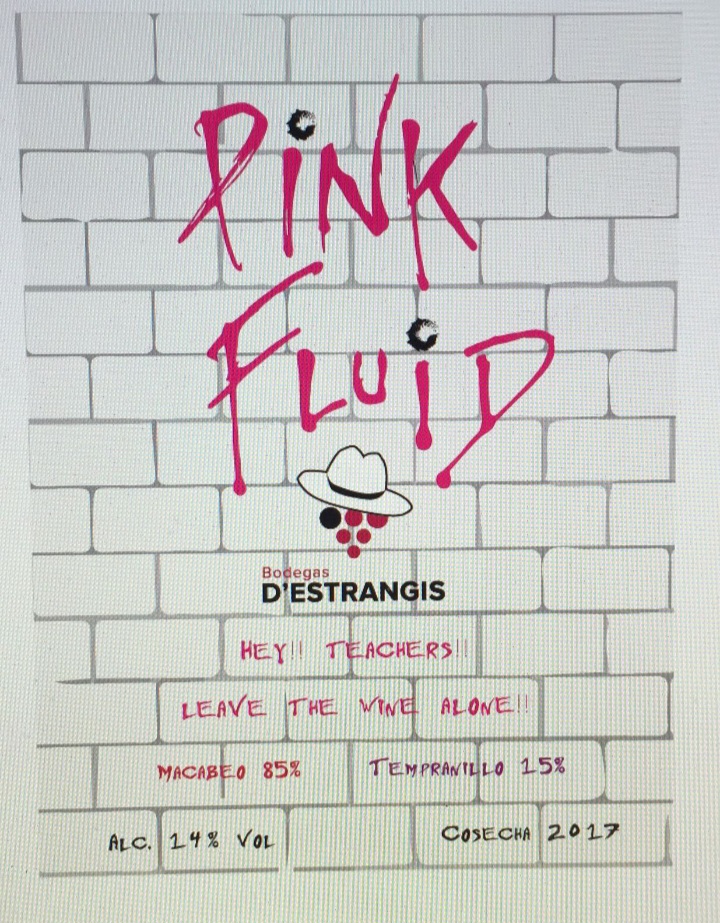 PiNK
FLUiD
Bodegas
D'ESTRANGIS
HEY!! TEACHERS!!
LEAVE THE WINE ALONE!!
MACABEO 85% TEMPRANILLO 15%
ALC. 14% VOL COSECHA 2017